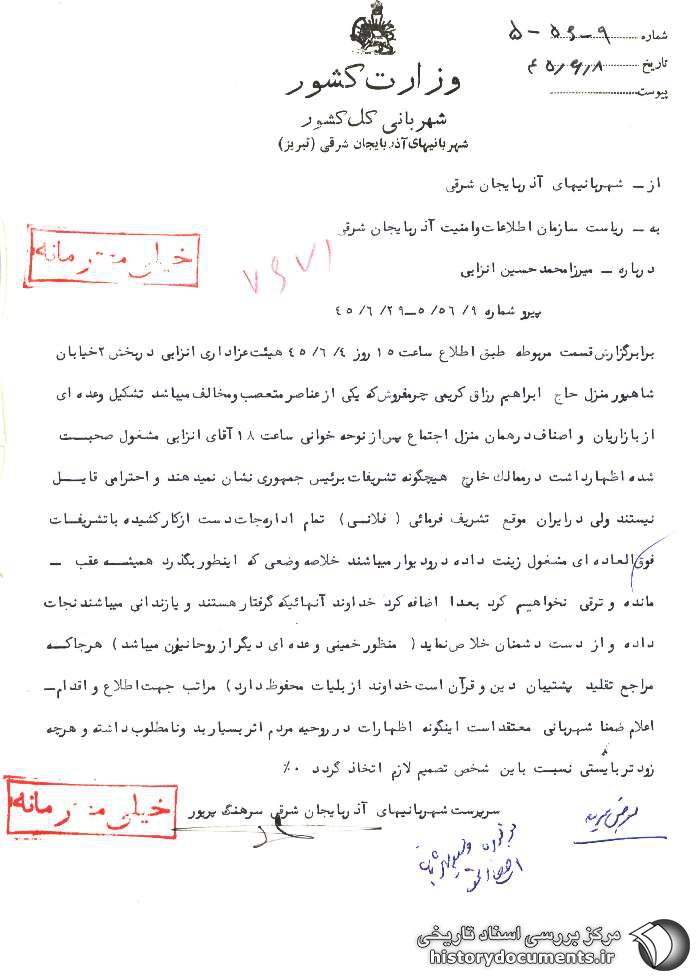 شماره ۹-۵۶-۵
تاریخ ۴۵/۶/۸
پیوست
وزارت کشور
شهربانی کل کشور
شهربانیهای آذربایجان شرقی (تبریز)
از ـ شهربانیهای آذربایجان شرقی
به ـ ریاست سازمان اطلاعات وامنیت آذربایجان شرقی
خیلی محرمانه
۷۶۷۱
درباره ـ میرزامحمدحسین انزابی
پیرو شماره ۹/ ۵/۵۶ــ۲۹/ ۶/ ۴۵
برابرگزارش قسمت مربوطه طبق اطلاع ساعت ۱۵ روز ۴/ ۶/ ۴۵ هیئت عزاداری انزابی دربخش ۲خیابان
شاهپور منزل حاج ابراهیم رزاق کریمی چرمفروش که یکی از عناصر متعصب ومخالف میباشد تشکیل وعده ای
از بازاریان و اصناف درهمان منزل اجتماع پس از نوحه خوانی ساعت ۱۸ آقای انزابی مشغول صحبت
شده اظهارداشت درممالک خارج هیچگونه تشریفات برئیس جمهوری نشان نمیدهند و احترامی قایل
نیستند ولی درایران موقع تشریف فرمائی ( فلانی) تمام اداره‌جات دست ازکارکشیده باتشریفات
فوق العاده ای مشغول زینت داده درودیوار میباشند خلاصه وضعی که اینطوربگذرد همیشه عقب ـ
مانده و ترقی نخواهیم کرد بعدا اضافه کرد خداوند آنهائیکه گرفتار هستند و یازندانی میباشند نجات
داده و از دست دشمنان خلاص نماید ( منظورخمینی وعده ای دیگر از روحانیون میباشد) هرجاکه
مراجع تقلید پشتیبان دین و قرآن است خداوند از بلیات محفوظ دارد) مراتب جهت اطلاع و اقدام ـ
اعلام ضمنا شهربانی معتقداست اینگونه اظهارات درروحیه مردم اثربسیاربد ونامطلوب داشته و هرچه
زودتر بایستی نسبت باین شخص تصمیم لازم اتخاذ گردد ۰٪
سرپرست شهربانیهای آذربایجان شرقی سرهنگ پریور
خیلی محرمانه
مرکز بررسی اسناد تاریخی
historydocuments.ir